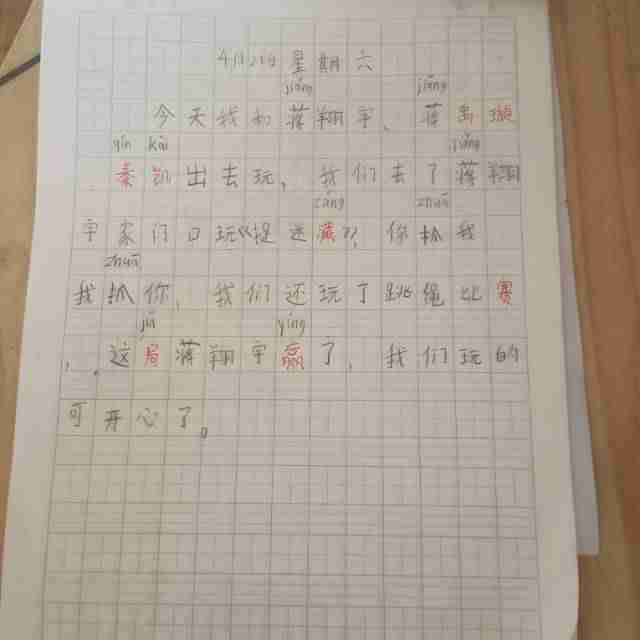 星期六
jiǎng jiǎng
今天我和蒋翔宇、蒋禹璇
qín kǎi jiǎng
秦凯出去玩，我们去了蒋翔
cáng zhuā
宇家门口玩《捉迷藏》，你抓我
zhuā
我抓你，我们还玩了跳绳比赛
jú yíng
。这局蒋翔宇赢了，我们玩的
可开心了。